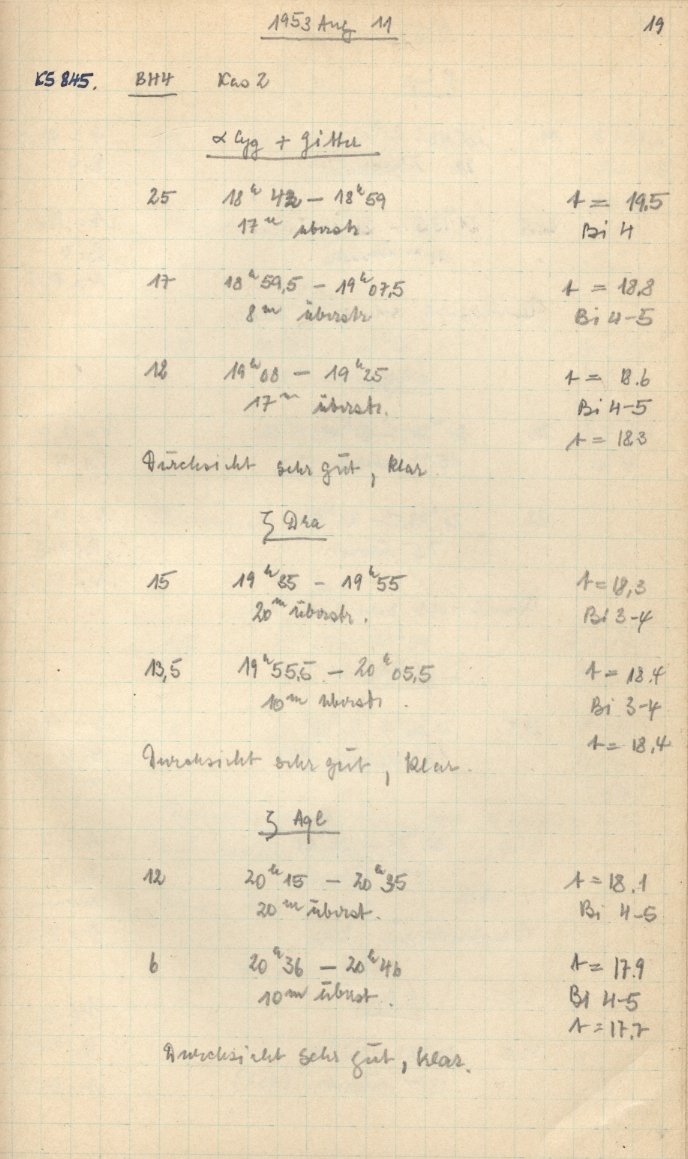 1953 Aug 11 19
KS 845. BH4 Kas 2
α Cyg + Gitter
25 18ʰ 42 – 18ʰ59 t = 19,5
17ᵐ überstr. Bi 4
17 18ʰ59,5 – 19ʰ07,5 t = 18,8
8ᵐ überstr Bi 4-5
12 19ʰ08 – 19ʰ25 t = 18.6
17ᵐ überstr. Bi 4-5
t = 18.3
Durchsicht sehr gut, klar
ζ Dra
15 19ʰ35 – 19ʰ55 t = 18,3
20ᵐ überstr. Bi 3-4
13,5 19ʰ55,5 – 20ʰ05,5 t = 18.4
10ᵐ überstr. Bi 3-4
t = 18,4
Durchsicht sehr gut, klar.
ζ Aql
12 20ʰ15 – 20ʰ35 t = 18.1
20ᵐ überst. Bi 4-5
6 20ʰ36 – 20ʰ46 t = 17.9
10ᵐ überst. Bi 4-5
t = 17,7
Durchsicht sehr gut, klar.